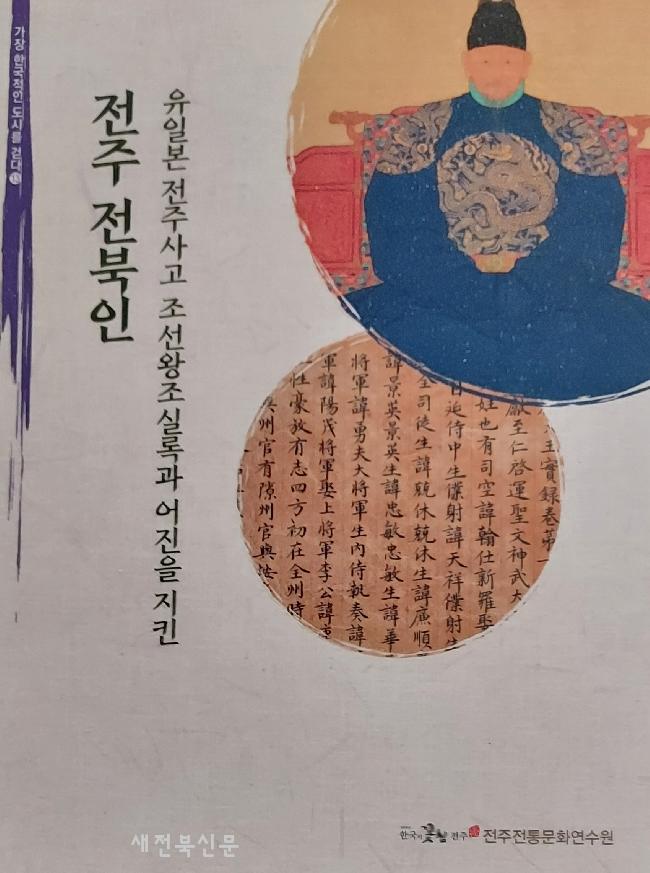 가장 한국적인 도시를 걷다
유일본 전주사고 조선왕조실록과 어진을 지킨
전주 전북인
實錄卷第一
至仁啓運聖文神武大
也有司空諱翰仕新羅娶
延侍中生僕射諱天祥僕射生
司徒生諱兢休兢休生諱廉順
諱景英景英生諱忠敏忠敏生諱華
將軍諱勇夫大將軍生內侍執奏諱
軍諱陽茂將軍娶上將軍李公諱
性豪放有志四方初在全州時
州官有隙州官與按
한국의 꽃심 전주
전주전통문화연수원
새전북신문